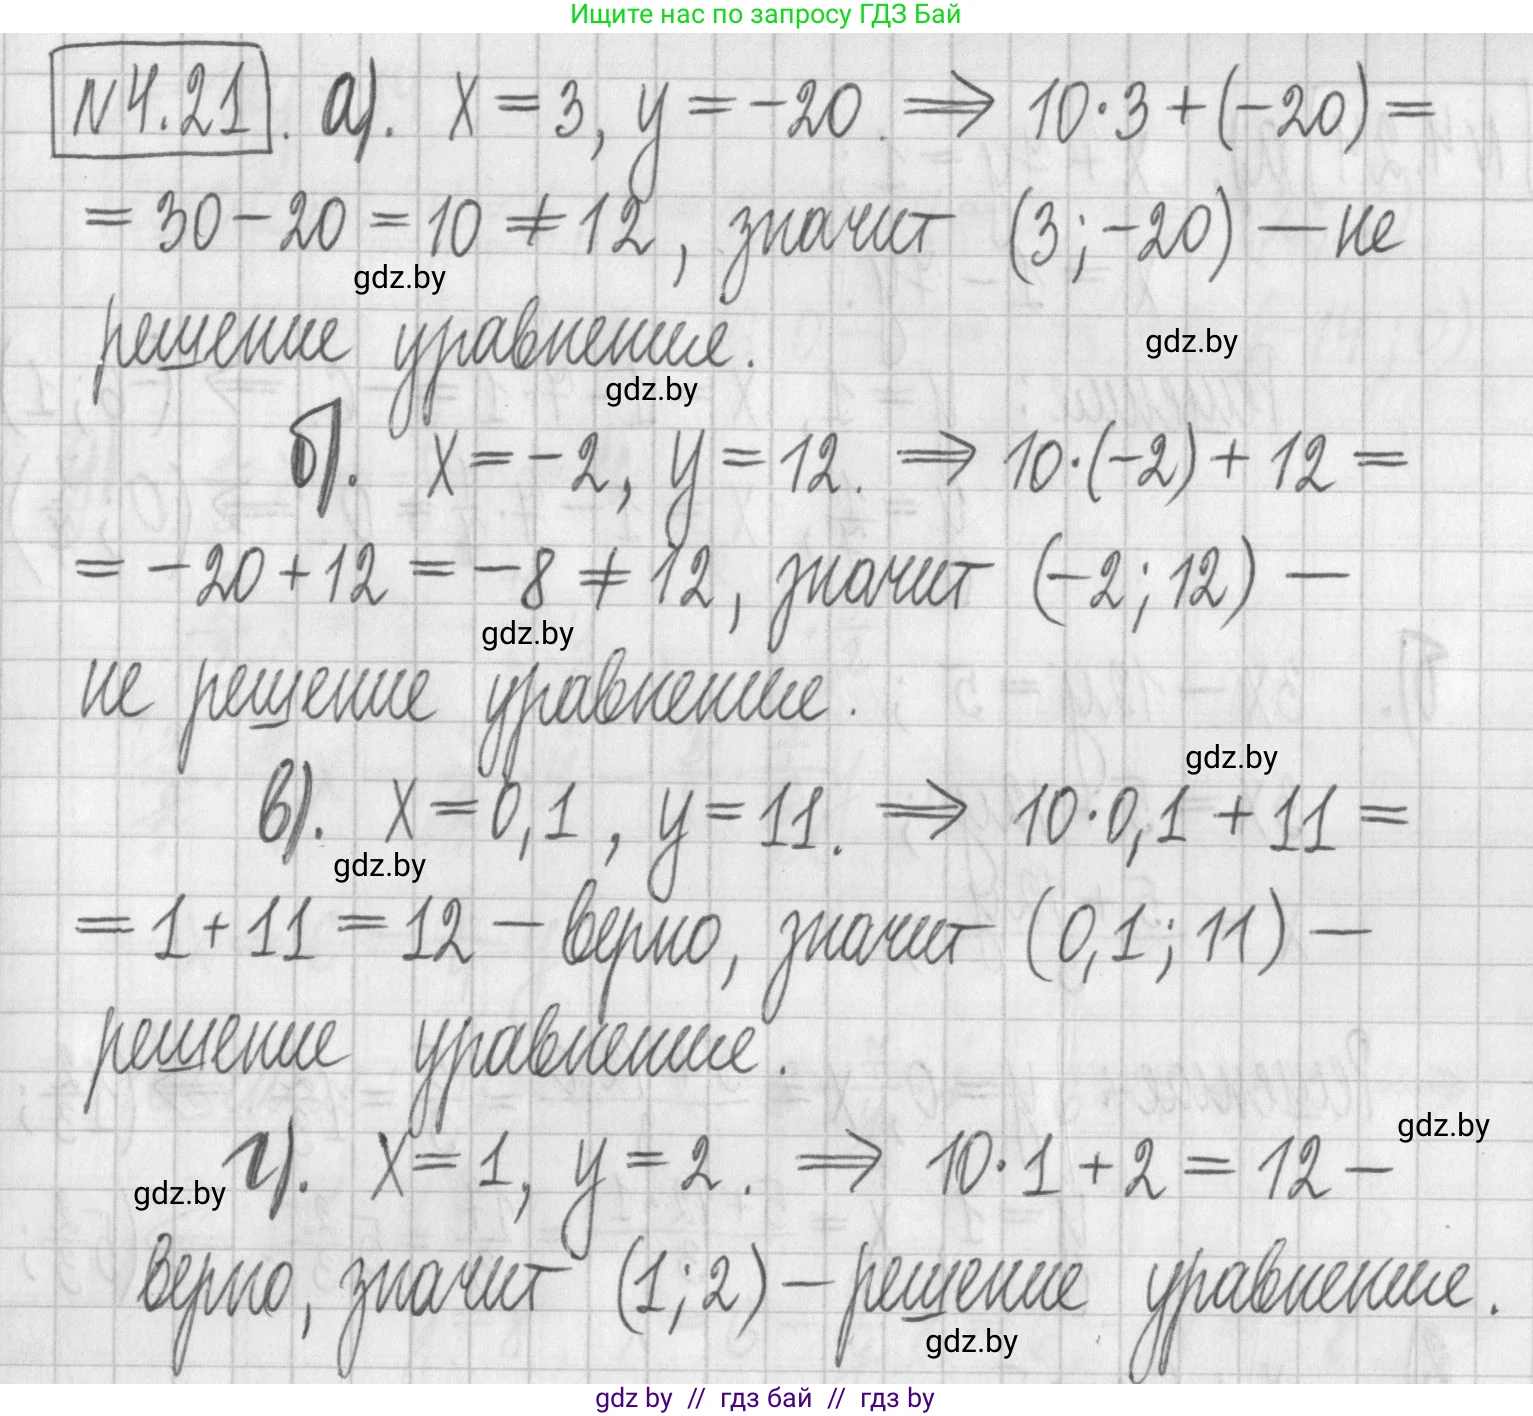 Ищите нас по запросу ГДЗ Бай
N4.21. а). x = 3, y = -20. ⇒ 10·3 + (-20) =
= 30 - 20 = 10 ≠ 12, значит (3; -20) — не
gdz.by
решение уравнение.
gdz.by
gdz.by
б). x = -2, y = 12. ⇒ 10·(-2) + 12 =
= -20 + 12 = -8 ≠ 12, значит (-2; 12) —
gdz.by
не решение уравнение.
gdz.by
в). x = 0,1, y = 11. ⇒ 10·0,1 + 11 =
gdz.by
= 1 + 11 = 12 - верно, значит (0,1; 11) —
решение уравнение.
gdz.by
г). x = 1, y = 2. ⇒ 10·1 + 2 = 12 —
gdz.by
верно, значит (1; 2) - решение уравнение.
gdz.by
gdz by // гдз бай // гдз by